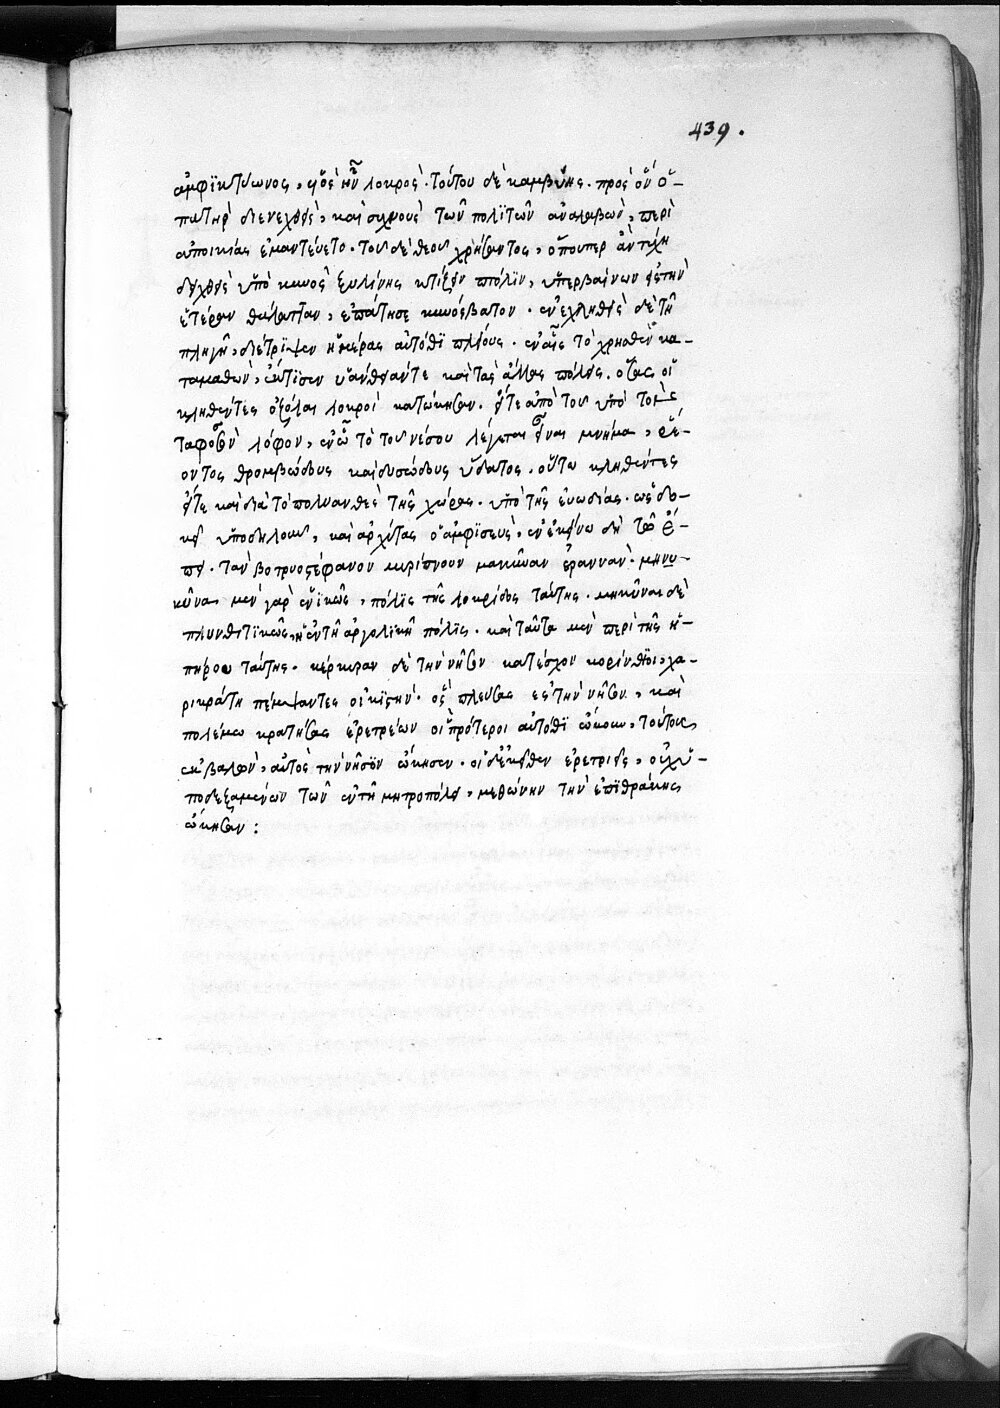 439.
ἀμφικτύωνος, υἱὸς ἦν λοκρὸς· τούτου δὲ καμβύσης. πρὸς ὃν ὁ
πατὴρ διενεχθεὶς, καὶ συχνοὺς τῶν πολιτῶν ἀναλαβὼν, περὶ
ἀποικίας ἐμαντεύετο· τοῦ δὲ θεοῦ χρήσαντος, ὅπουπερ ἂν τύχη
δηχθεὶς ὑπὸ κυνὸς ξυλίνης κτίζειν πόλιν, ὑπερβαίνων εἰς τὴν
ἑτέραν θάλατταν, ἐπάτησε κυνόσβατον· ἐνοχληθεὶς δὲ τῆ
πληγῆ, διέτριψεν ἡμέρας αὐτόθι πλείους· ἐν αἷς τὸ χρησθὲν κα-
ταμαθὼν, ἔκτισεν ὑάνθειάν τε καὶ τὰς ἄλλας πόλεις, ὅσας οἱ
κληθέντες ὀζόλαι λοκροὶ κατώκησαν. εἴτε ἀπὸ τοῦ ὑπὸ τὸν
ταφοσὸν λόφον, ἐν ὧ τὸ τοῦ νέσου λέγεται εἶναι μνῆμα, ῥέ-
οντος θρομβώδους καὶ δυσώδους ὕδατος, οὕτω κληθέντες
εἴτε καὶ διὰ τὸ πολυανθὲς τῆς χώρας. ὑπὸ τῆς εὐωδίας. ὡς δο-
κεῖ ὑποδηλοῦν, καὶ ἀρχύτας ὁ ἀμφισεὺς, ἐν ἐκείνω δὴ τῶ ἔ-
πει. τὰν βοτρυοστέφανον μυρίπνουν μακῦναν ἐραννάν· μηνυ-
κῦνα μὲν γὰρ ἑνικῶς, πόλις τῆς λοκρίδος ταύτης. μηκῦναι δὲ
πληθυντικῶς, ἡ ἐν τῆ ἀργολικῆ πόλις. καὶ ταῦτα μὲν περὶ τῆς ἠ-
πείρου ταύτης· κέρκυραν δὲ τὴν νῆσον κατέσχον κορίνθιοι, χα-
ρικράτη πέμψαντες οἰκιστήν· ὃς πλεύσας ἐς τὴν νῆσον, καὶ
πολέμω κρατήσας ἐρετριέων οἳ πρότεροι αὐτόθι ὤκουν, τούτους
ἐκβαλὼν, αὐτὸς τὴν νῆσον ὤκησεν. οἱ δ' ἐκεῖθεν ἐρετριεῖς, οὐχ ὑ-
ποδεξαμένων τῶν ἐν τῆ μητροπόλει, μεθώνην τὴν ἐπὶ θράκης
ὤκησαν: